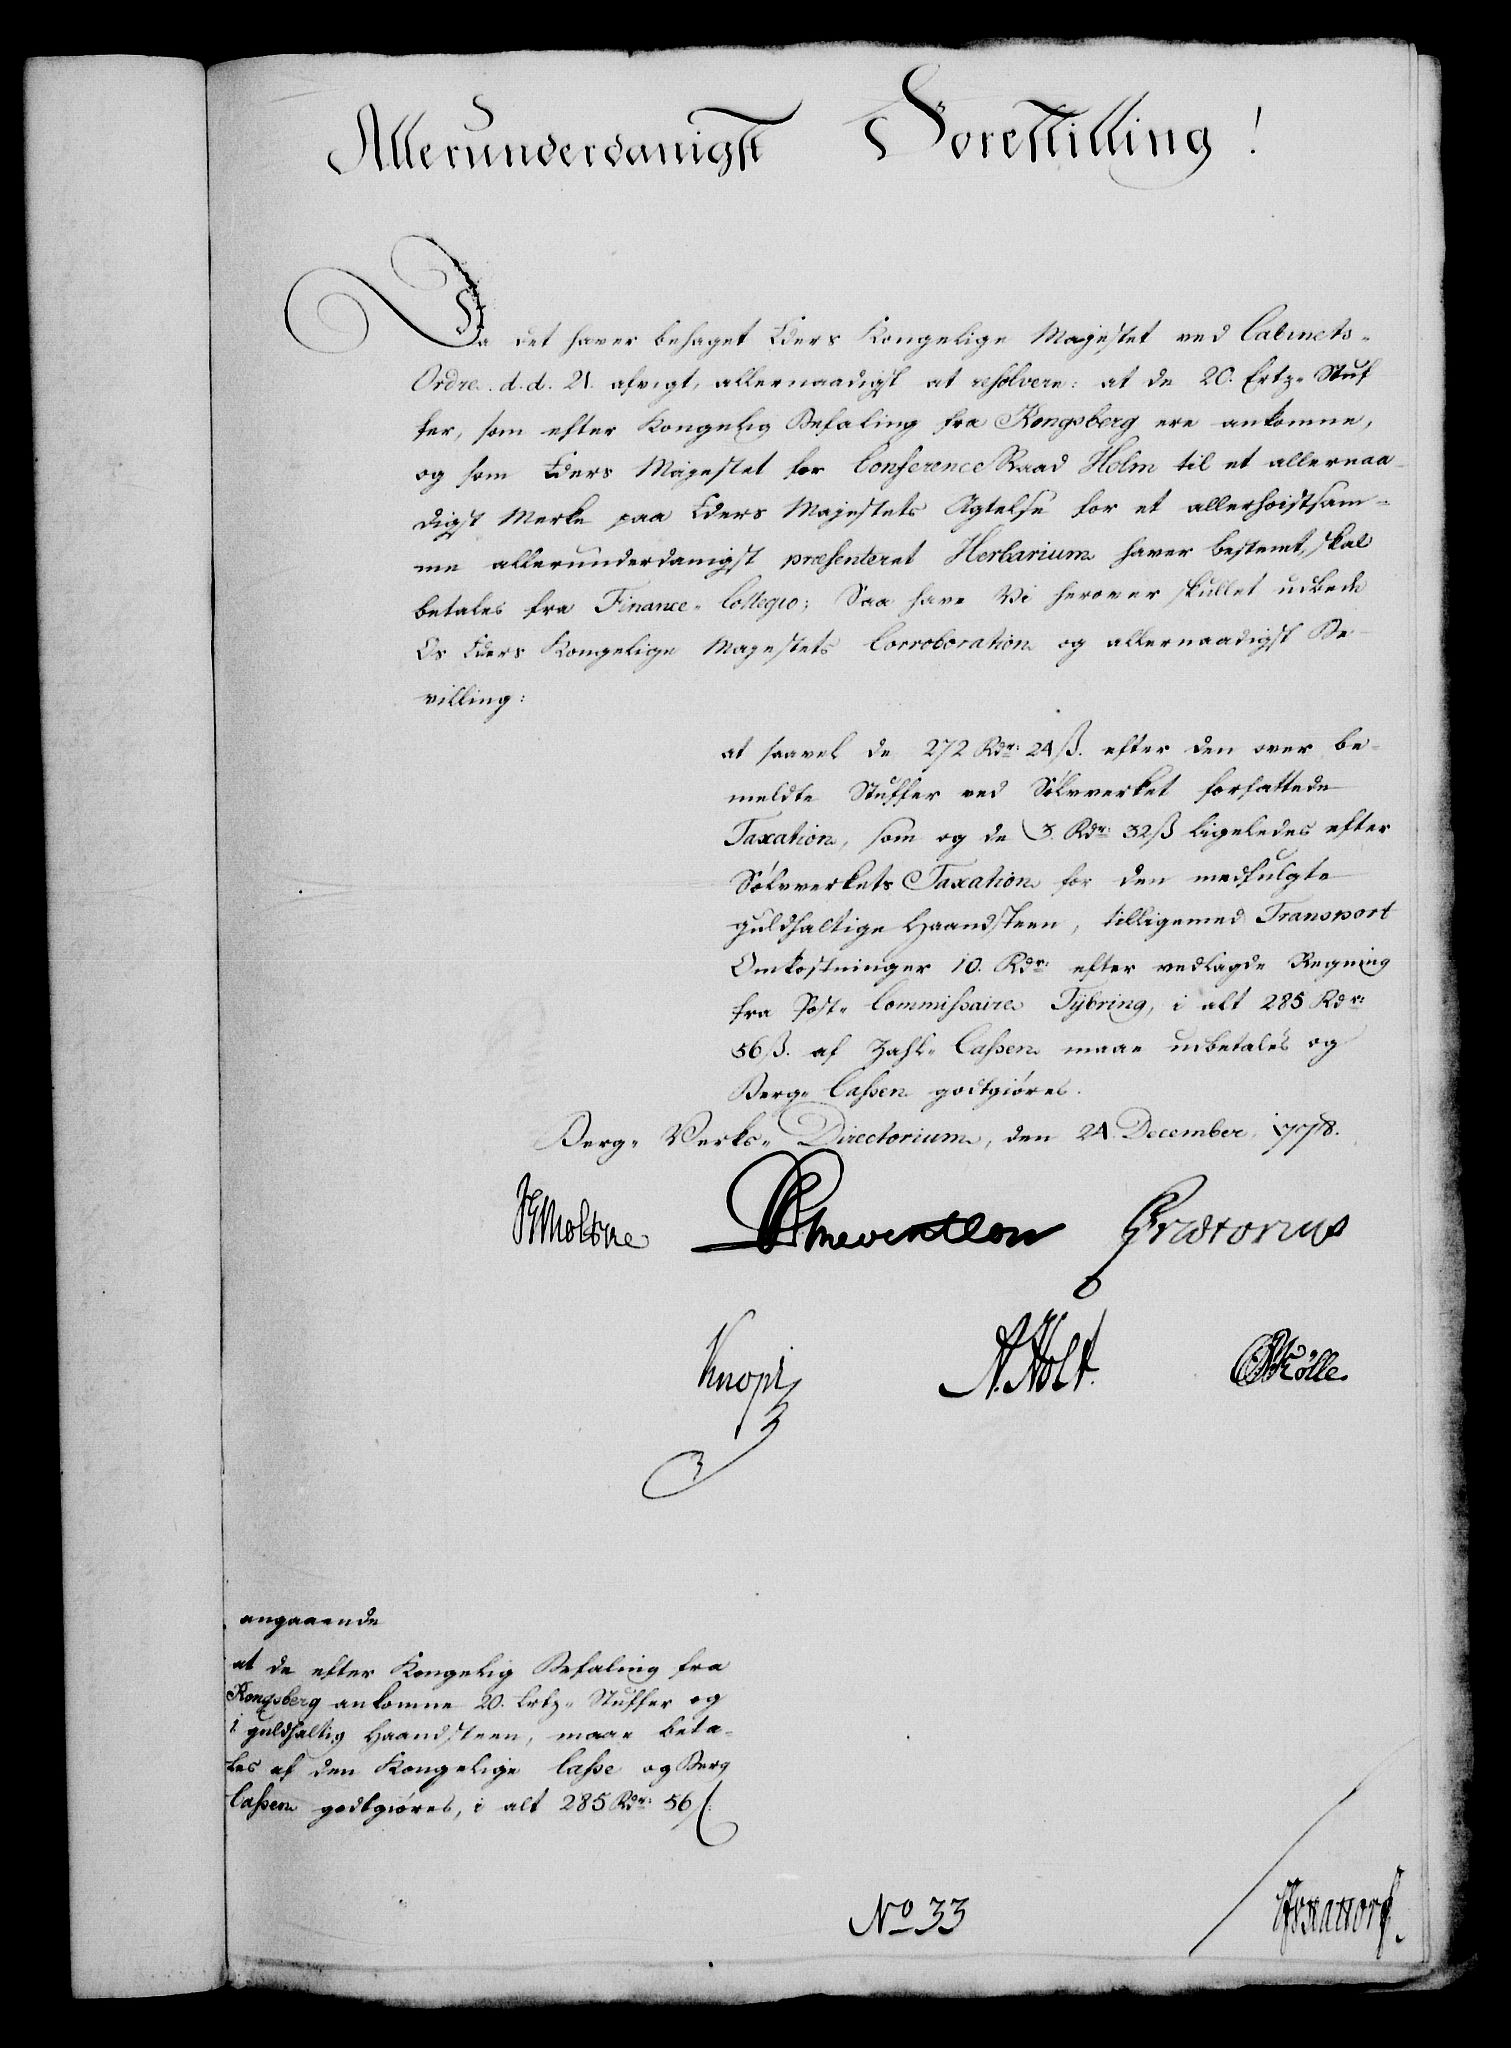 Allerunderdanigst Forestilling!
Da det haver behaget Eders Kongelige Majestet ved Cabinets-
Ordre d. d. 21. afvigt, allernaadigst at resolvere: at de 20. Ertz- Stuf
fer, som efter Kongelig Befaling fra Kongsberg ere ankomne,
og som Eders Majestet for Conference Raad Holm til et allernaa-
digst Merke paa Eders Majestets Agtelse for et allerhøistsam-
me allerunderdanigst præsenteret Herbarium haver bestemt, skal
betales fra Finance- Collegio; Saa have Vi herover skullet udbede
Os Eders Kongelige Majestets Corroboration og allernaadigst Be-
villing:
at saavel de 272 Rdr: 24 ß. efter den over be-
meldte Stuffer ved Sølvverket forfattede
Taxation, som og de 3. Rdr: 32 ß ligeledes efter
Sølvverkets Taxation for den medfulgte
guldhaltige Haandsteen, tilligemed Transport
Omkostninger 10. Rdr: efter vedlagde Regning
fra Post- Commissaire Tÿbring, i alt 285 Rdr:
56 ß. af Zahl- Cassen maae udbetales og
Berg- Cassen godtgiøres.
Berg- Verks- Directorium, den 24. December, 1778.
Moltke Reventlow Prætorius
Knopf A. Holt. Kölle.
angaaende
at de efter Kongelig Befaling fra
Kongsberg ankomne 20. Ertz- Stuffer og
1 guldhaltig Haandsteen, maae beta-
les af den Kongelige Casse og Berg
Cassen godtgiøres, i alt 285 Rdr: 56 ß.
No 33